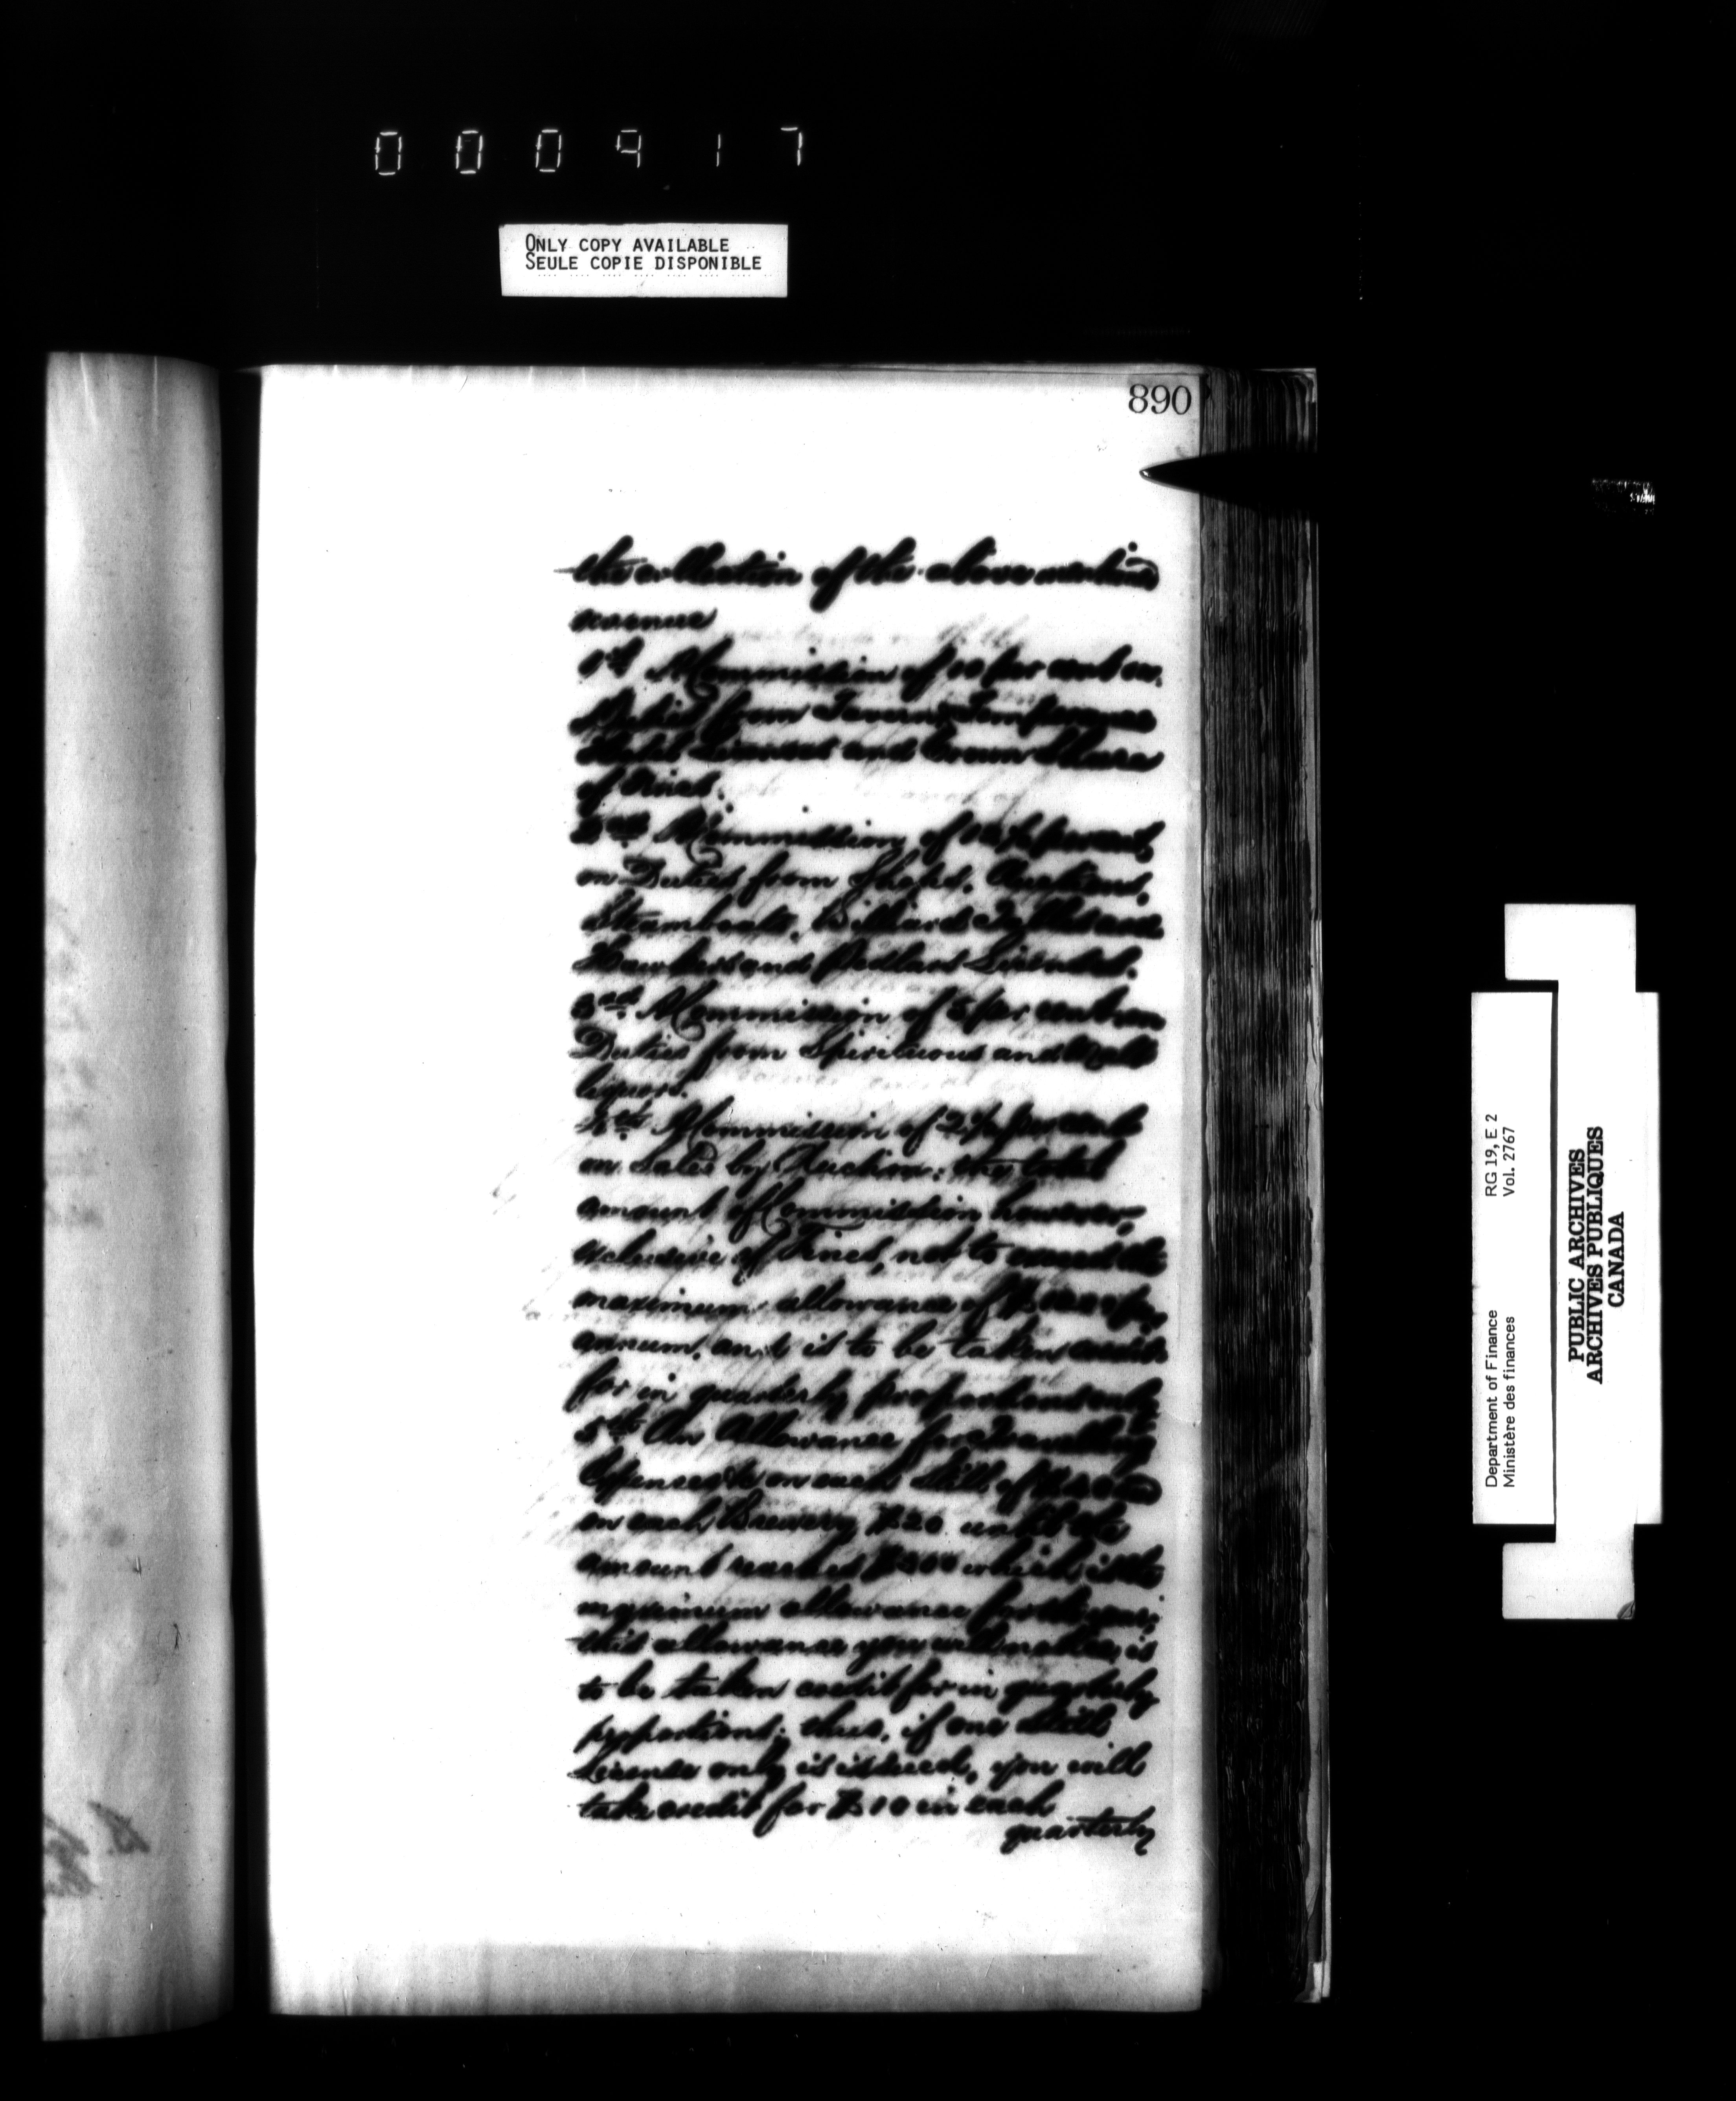 000917
ONLY COPY AVAILABLE
SEULE COPIE DISPONIBLE
890
the collection of the above
revenue
1st A Commission of 10 per cent on
Duties from Tavern Temperance
Hotel Licenses and Crown Share
of Fines.
2nd A Commission of 12½ per cent
on Duties from Shops, Auctions,
Steamboats, Billiard Tables and
Hawkers and Pedlars Licenses.
3rd A Commission of 5 per cent on
Duties from Spirituous and Malt
liquors.
4th A Commission of 2½ per cent
on Sales by Auction: the total
amount of Commission however
exclusive of Fines, not to exceed the
maximum allowance of per
annum, and is to be taken credit
for in quarterly proportions only
5th An Allowance for Travelling
Expenses to on each Still of and
on each Brewery $20 until the
amount reaches $200 which is the
maximum allowance for the year;
this allowance you will notice, is
to be taken credit for in quarterly
proportions; thus, if one Still
License only is issued, you will
take credit for $10 in each
quarterly
Department of Finance RG 19, E 2
Ministère des finances Vol. 2767
PUBLIC ARCHIVES
ARCHIVES PUBLIQUES
CANADA